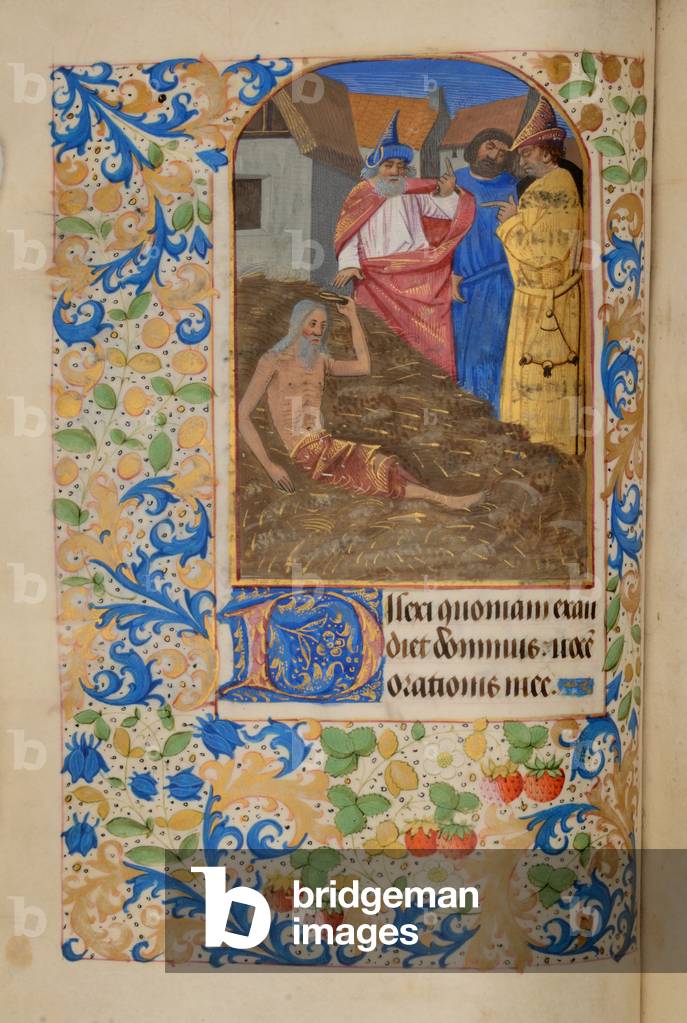 Dilexi quoniam exau
diet dominus. uocē
orationis mee.
bridgeman
images